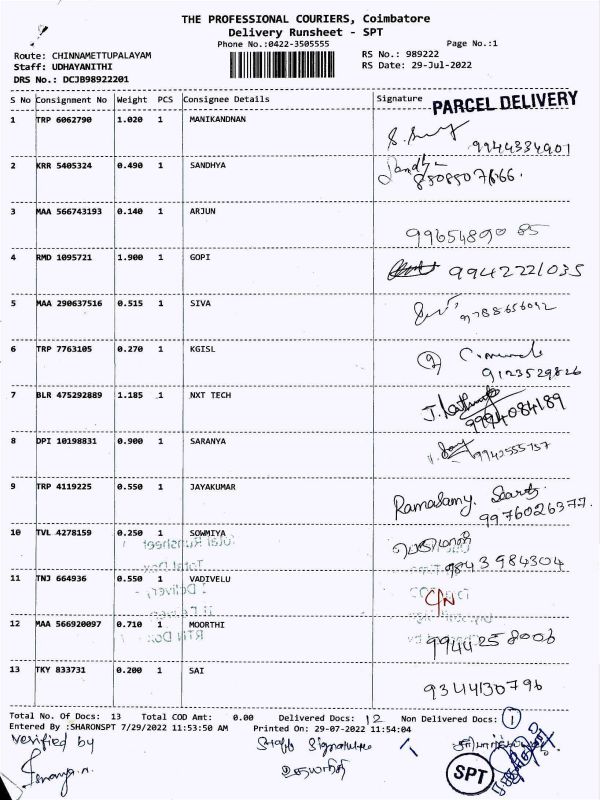 THE PROFESSIONAL COURIERS, Coimbatore
Delivery Runsheet - SPT
Phone No.:0422-3505555
Page No.:1
Route: CHINNAMETTUPALAYAM
RS No.: 989222
Staff: UDHAYANITHI
RS Date: 29-Jul-2022
DRS No.: DCJB98922201
S No Consignment No Weight PCS Consignee Details Signature PARCEL DELIVERY
1 TRP 6062790 1.020 1 MANIKANDNAN
9944334901
2 KRR 5405324 0.490 1 SANDHYA
3 MAA 566743193 0.140 1 ARJUN
9965489085
4 RMD 1095721 1.900 1 GOPI 9942221035
5 MAA 290637516 0.515 1 SIVA
9788656092
6 TRP 7763105 0.270 1 KGISL
9123529826
7 BLR 475292889 1.185 1 NXT TECH
9994084189
8 DPI 10198831 0.900 1 SARANYA
9942555757
9 TRP 4119225 0.550 1 JAYAKUMAR
Ramasamy.
9976026377.
10 TVL 4278159 0.250 1 SOWMIYA
9843984304
11 TNJ 664936 0.550 1 VADIVELU
C/N
12 MAA 566920097 0.710 1 MOORTHI
9944258006
13 TKY 833731 0.200 1 SAI
9344130796
Total No. Of Docs: 13 Total COD Amt: 0.00 Delivered Docs: 12 Non Delivered Docs: 1
Entered By :SHARONSPT 7/29/2022 11:53:50 AM Printed On: 29-07-2022 11:54:04
verified by
Signature
SPT